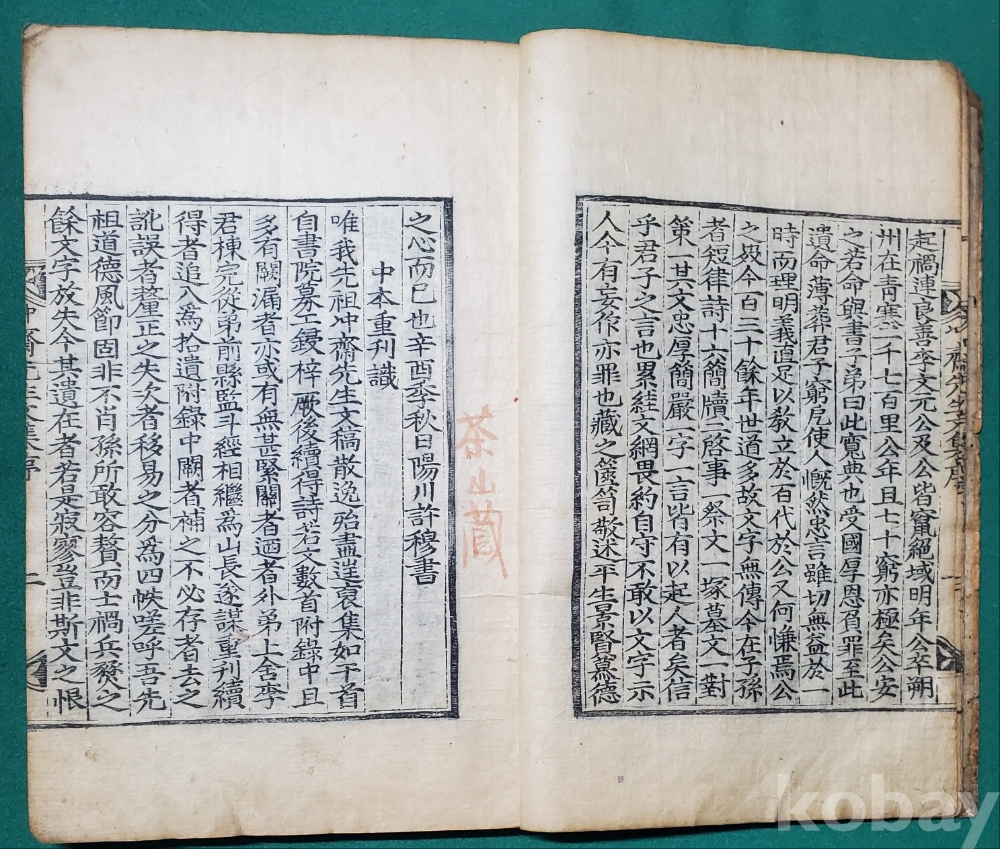 冲齋先生文集序
起禍連良善李文元公及公皆竄絕域明年公卒朔
州在青塞一千七百里公年且七十窮亦極矣公安
之若命與書子弟曰此寬典也受國厚恩負罪至此
遺命薄葬君子窮尼使人慨然忠言雖切無益於一
時而理明義直足以敎立於百代於公又何慊焉公
之歿今百三十餘年世道多故文字無傳今在子孫
者短律詩十六簡牘二啓事一祭文一塜墓文一對
第一其文忠厚簡嚴一字一言皆有以起人者矣信
乎君子之言也累絓文網畏約自守不敢以文字示
人今有妄作亦罪也藏之篋笥敬述平生景賢慕德
之心而已也辛酉季秋日陽川許穆書
中本重刊識
唯我先祖冲齋先生文稿散逸殆盡遑裒集如干首
自書院募工鋟梓厥後續得詩若文數首附錄中且
多有闕漏者亦或有無甚緊關者迺者外弟上舍李
君棟完從弟前縣監斗經相繼爲山長遂謀重刊續
得者追入為拾遺附錄中闕者補之不必存者去之
訛誤者釐正之失次者移易之分爲四帙嗟呼吾先
祖道德風節固非不肖孫所敢容贅而士禍兵燹之
餘文字放失今其遺在者若是寂寥豈非斯文之恨
冲齋先生文集序
二
茶山藏
kobay